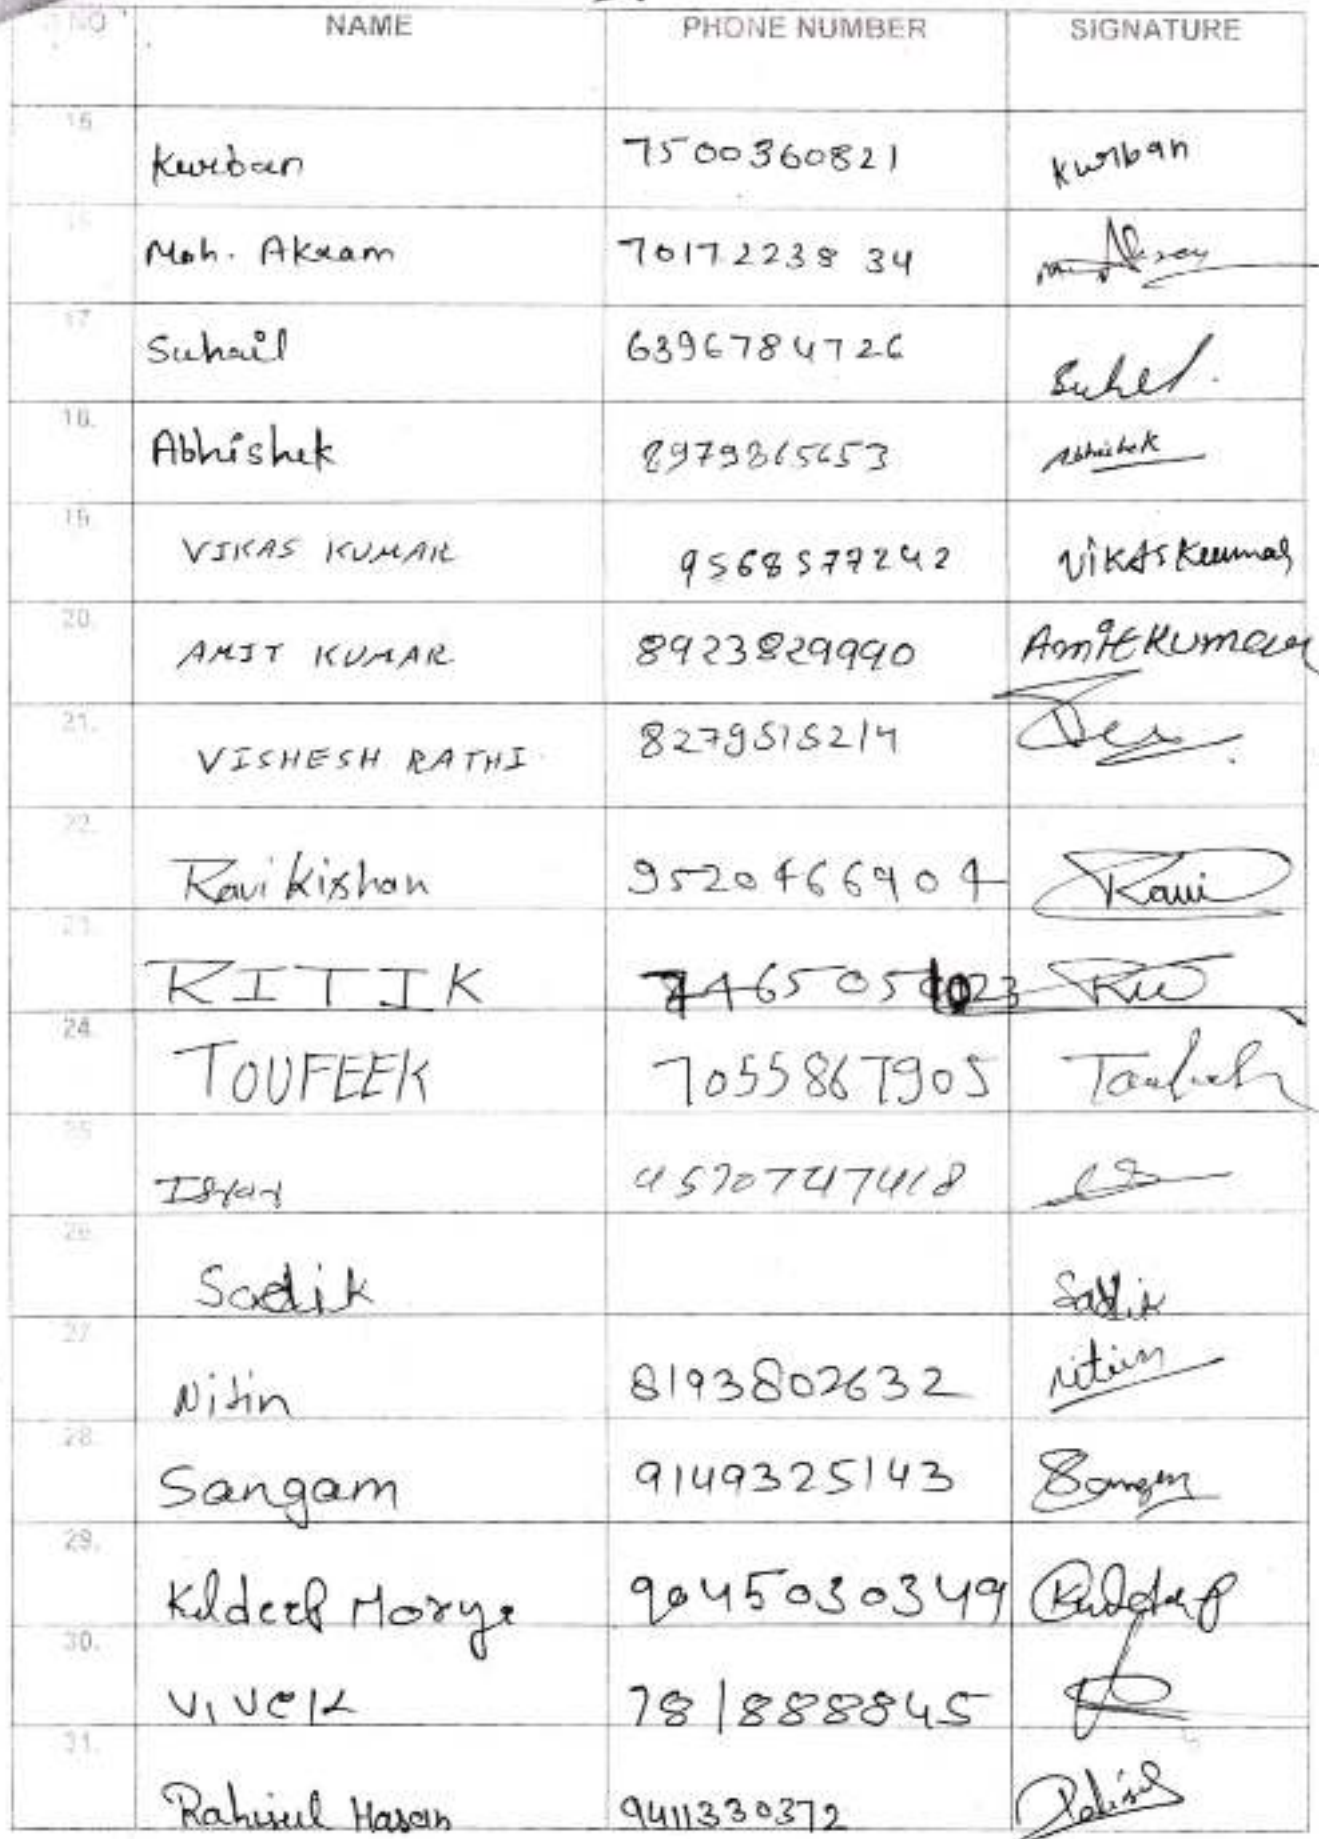 NAME PHONE NUMBER SIGNATURE
Kurban 7500360821 Kurban
16 Moh. Akram 7017223834
17 Suhail 6396784726 Suhel.
18. Abhishek 8979365653 Abhishek
19 VIKAS KUMAR 9568577242 Vikas Kumar
20. AMIT KUMAR 8923829990 Amit Kumar
21. VISHESH RATHI 8279515214
22. Ravi Kishan 9520466904 Ravi
23. RITIK
24. TOUFEEK 7055867905
25
26 Sadik Sadik
27 Nitin 8193802632 nitin
28. Sangam 9149325143 Sangam
29. Kldeep Morya 9045030349 Kuldeep
30. Vivek 781888845
31. Rahisul Hasan 9411330372 Rahisul